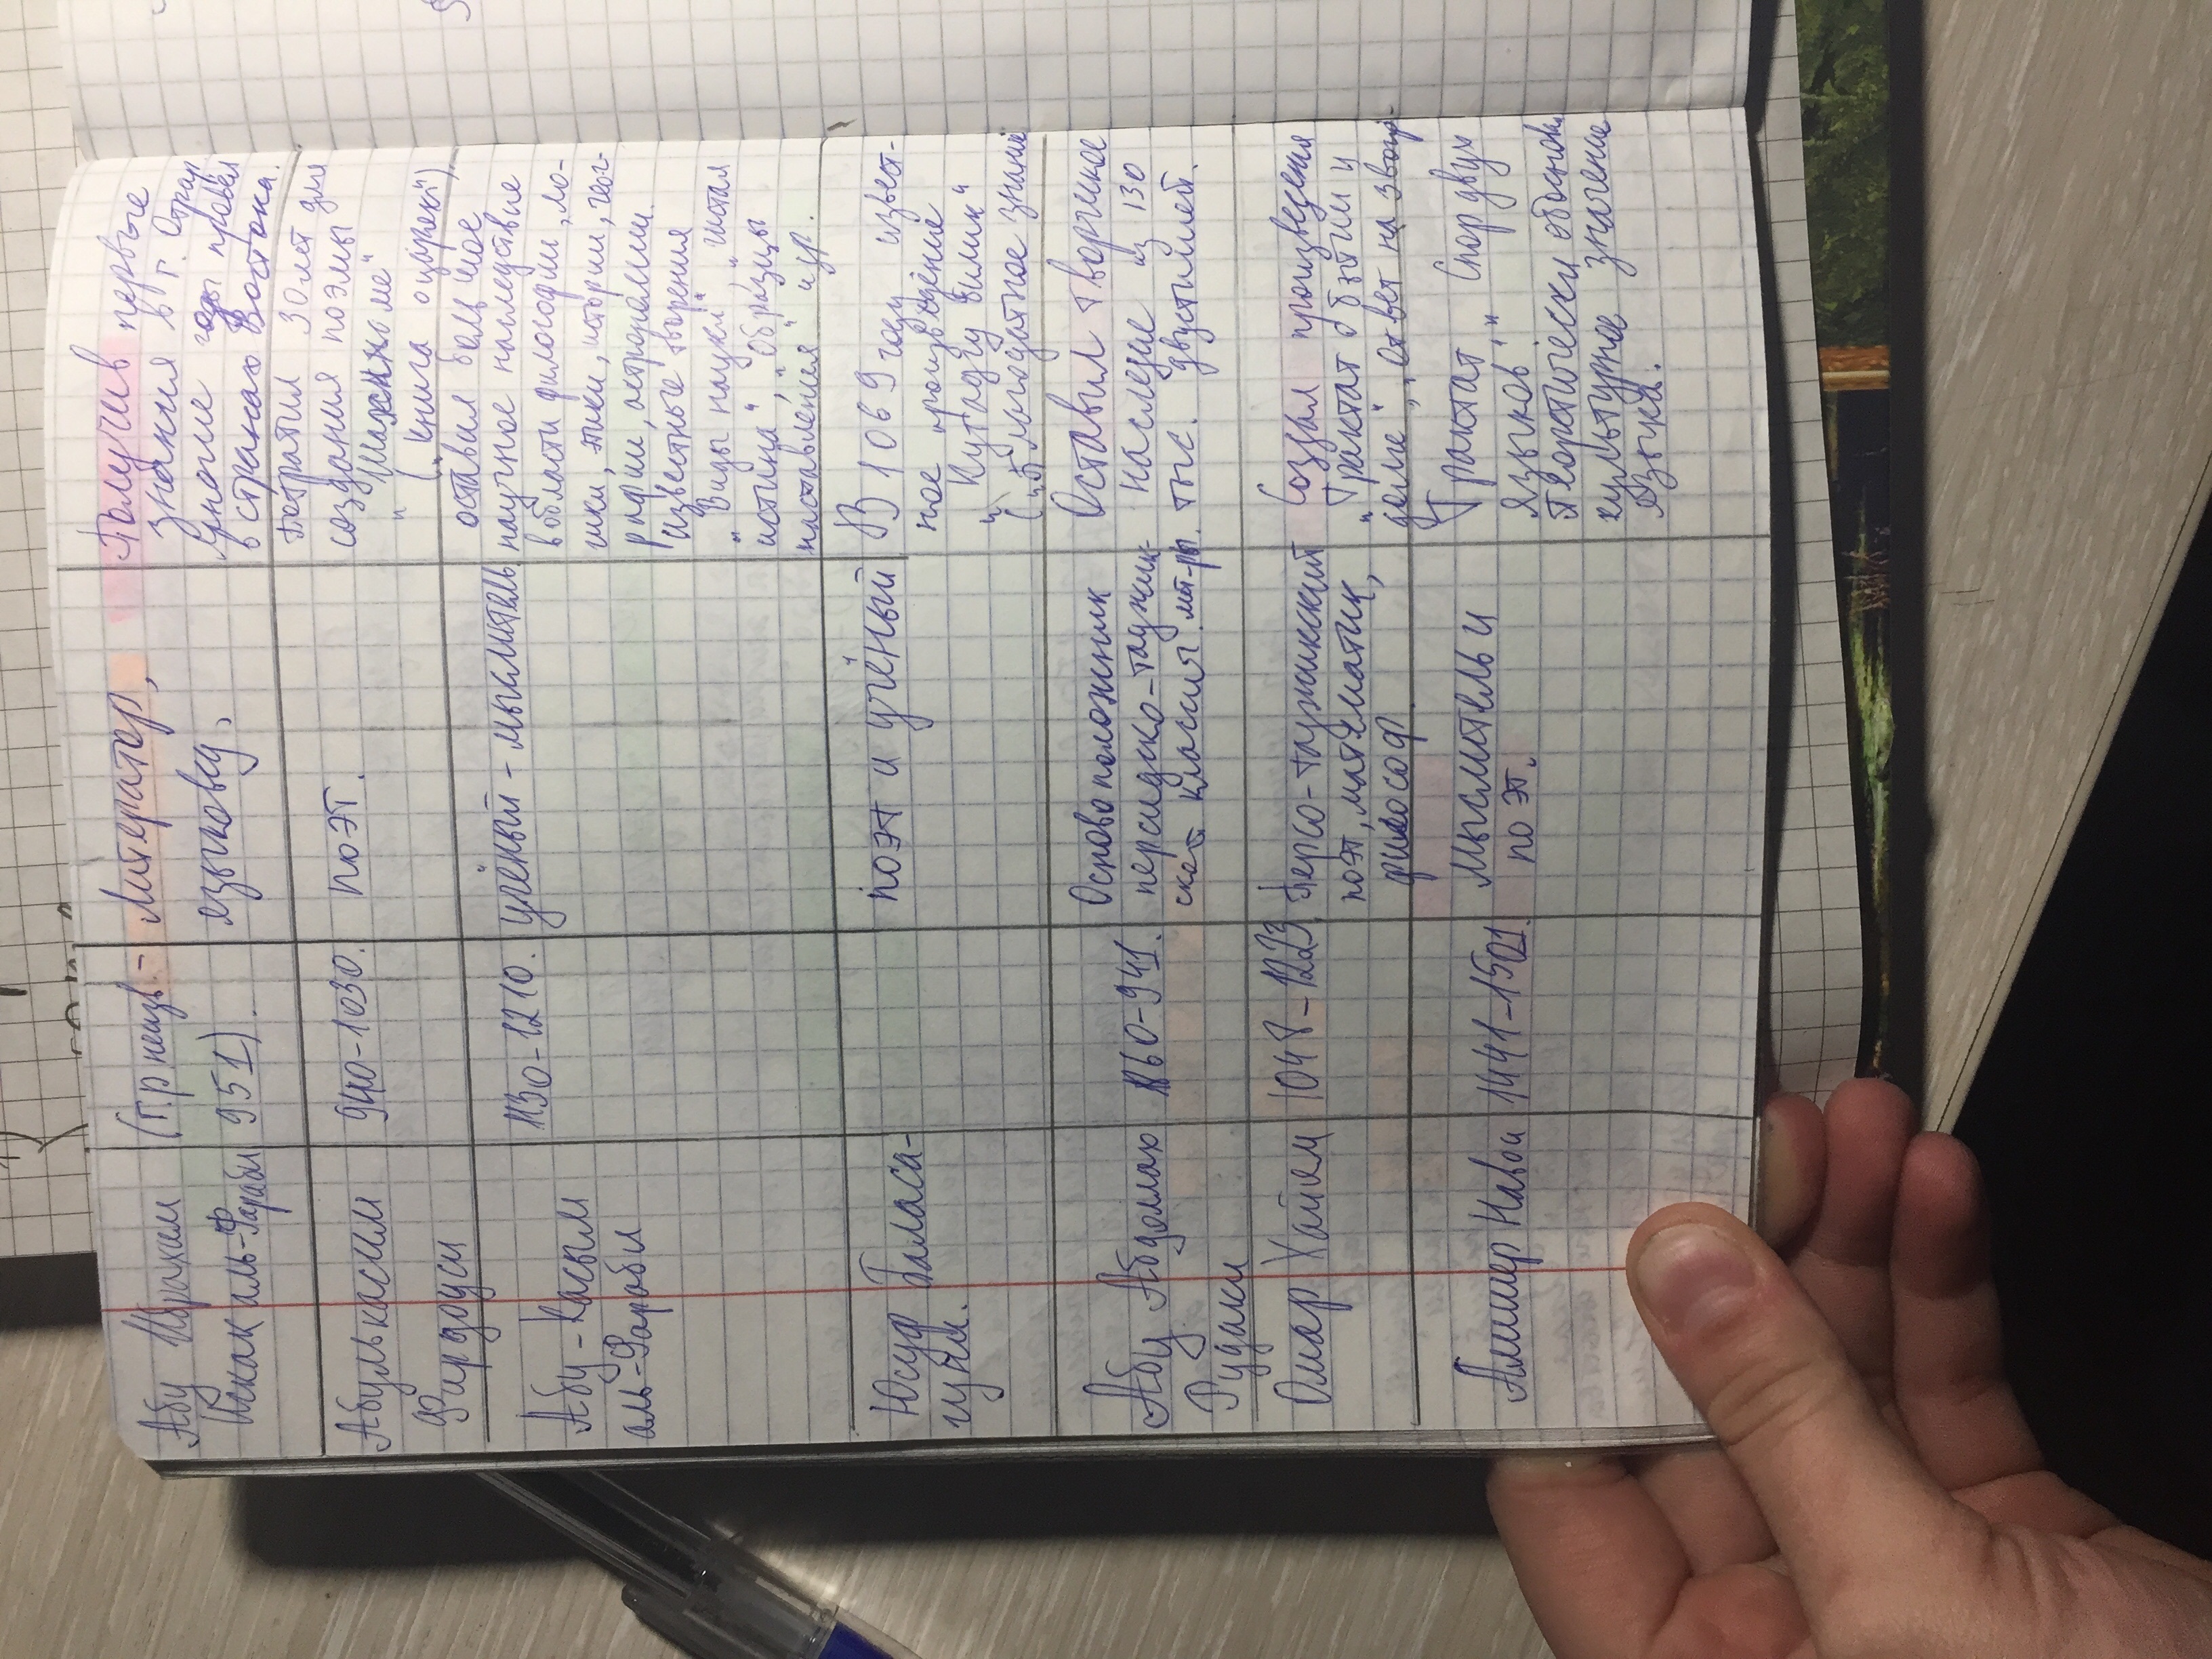 Абу Ибрахим
Исхак аль-Фараби
(г.р неизв. -
951).
Литератор,
языковед.
Получив первые
знания в г. Отрар
многие годы провёл
в странах Востока.
Абулькасим
Фирдоуси
940-1030.
поэт.
потратил 30 лет для
создания поэмы
"Шахнаме"
("книга о царях")
Абу-Касым
аль-Фароби
1130-1210.
учёный - мыслитель
оставил большое
научное наследство
в области философии, ло-
гики, этики, истории, геог-
рафии, астрономии.
известные творения
"Виды наук", "исток
истина", "Образцы
наставления" и др.
Юсуф Баласа-
гуни.
поэт и учёный
В 1069 году извест-
ное произведение
"Кутадгу билик"
("благодатное знание
Абу Абдоллах
Рудаки
860-941.
Основоположник
персидско-таджик-
ской классич. лит-ры.
Оставил творческое
наследие из 130
тыс. двустиший.
Омар Хайям
1048-1223
Персо-таджикский
поэт, математик,
философ
Создал произведения
"Трактат о бытии и
долге", "ответ на
Алишер Навои
1441-1501.
мыслитель и
поэт.
Трактат "Спор двух
языков"
теоретически обоснов.
культурное значение
языка.